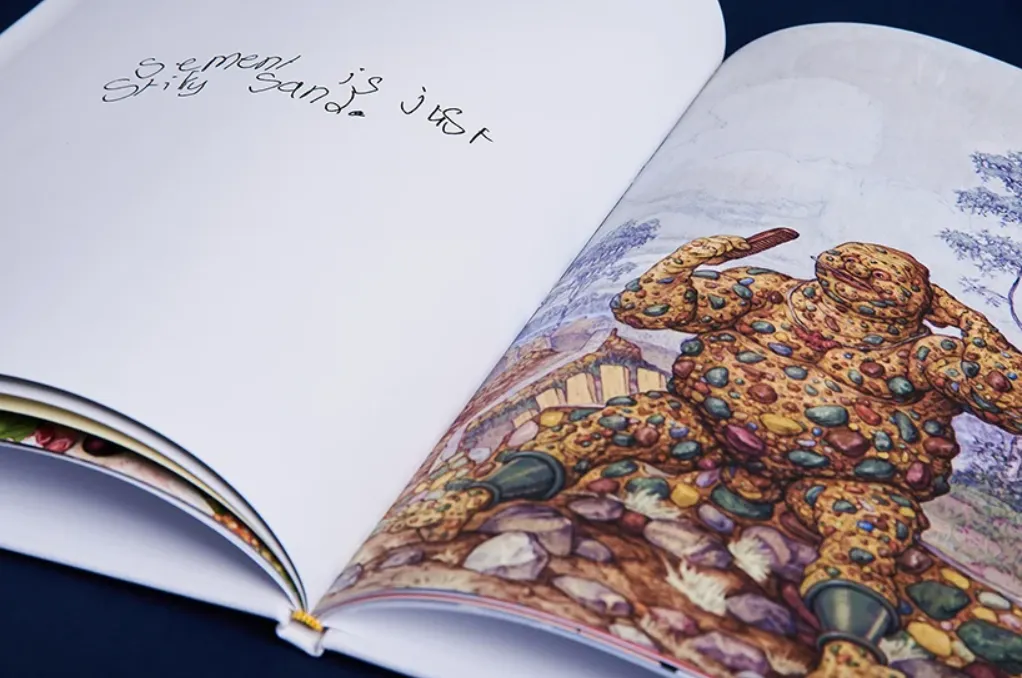 sement is just
Stiky Sand.